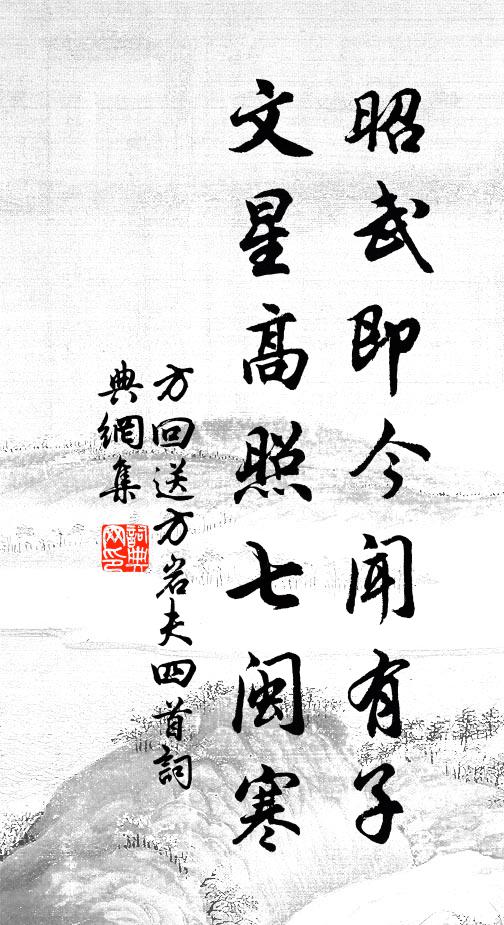 昭武即今闻有子
文星高照七闽寒
方回送方岩夫四首詞
典網集
詞典
网印